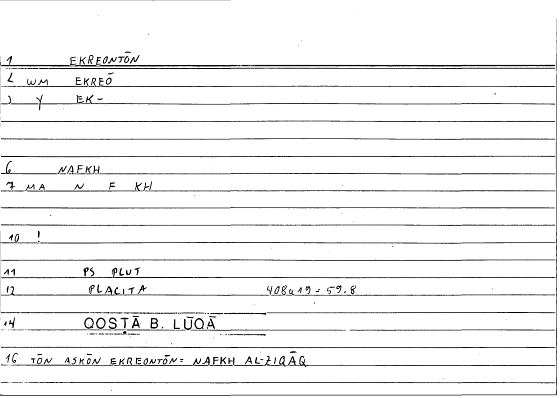 1 EKREONTŌN
2 WM EKREŌ
3 Y EK-
6 NAFKH
7 MA N F KH
10 !
11 PS PLUT
12 PLACITA 408a19 = 59.8
14 QOSṬĀ B. LŪQĀ
16 TŌN ASKŌN EKREONTŌN = NAFKH AL-ZIQĀQ